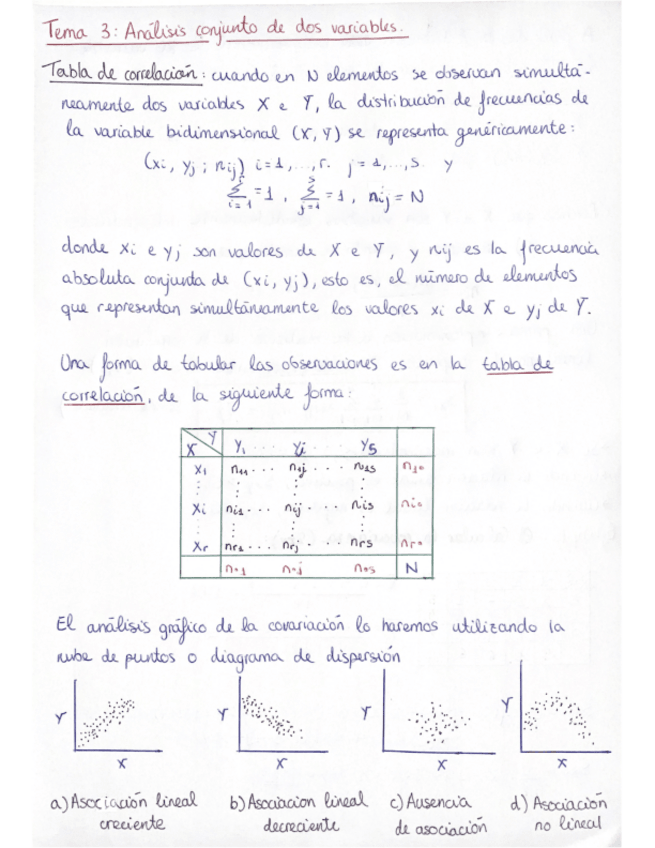 Tema 3: Análisis conjunto de dos variables.
Tabla de correlación: cuando en N elementos se observan simultá-
neamente dos variables X e Y, la distribución de frecuencias de
la variable bidimensional (X, Y) se representa genéricamente:
(xi, yj ; nij) i=1,...,r. j=1,...,s. y
r∑i=1 =1 , s∑j=1 =1, nij = N
donde xi e yj son valores de X e Y, y nij es la frecuencia
absoluta conjunta de (xi, yj), esto es, el número de elementos
que representan simultáneamente los valores xi de X e yj de Y.
Una forma de tabular las observaciones es en la tabla de
correlación, de la siguiente forma:
X Y y1 .... yj .... ys
x1 n11 ... n1j ... n1s n1•
xi ni1 ... nij ... nis ni•
xr nr1 ... nrj ... nrs nr•
n•1 n•j n•s N
El análisis gráfico de la covariación lo haremos utilizando la
nube de puntos o diagrama de dispersión
Y Y Y Y
X X X X
a) Asociación lineal creciente
b) Asociacion lineal decreciente
c) Ausencia de asociación
d) Asociación no lineal